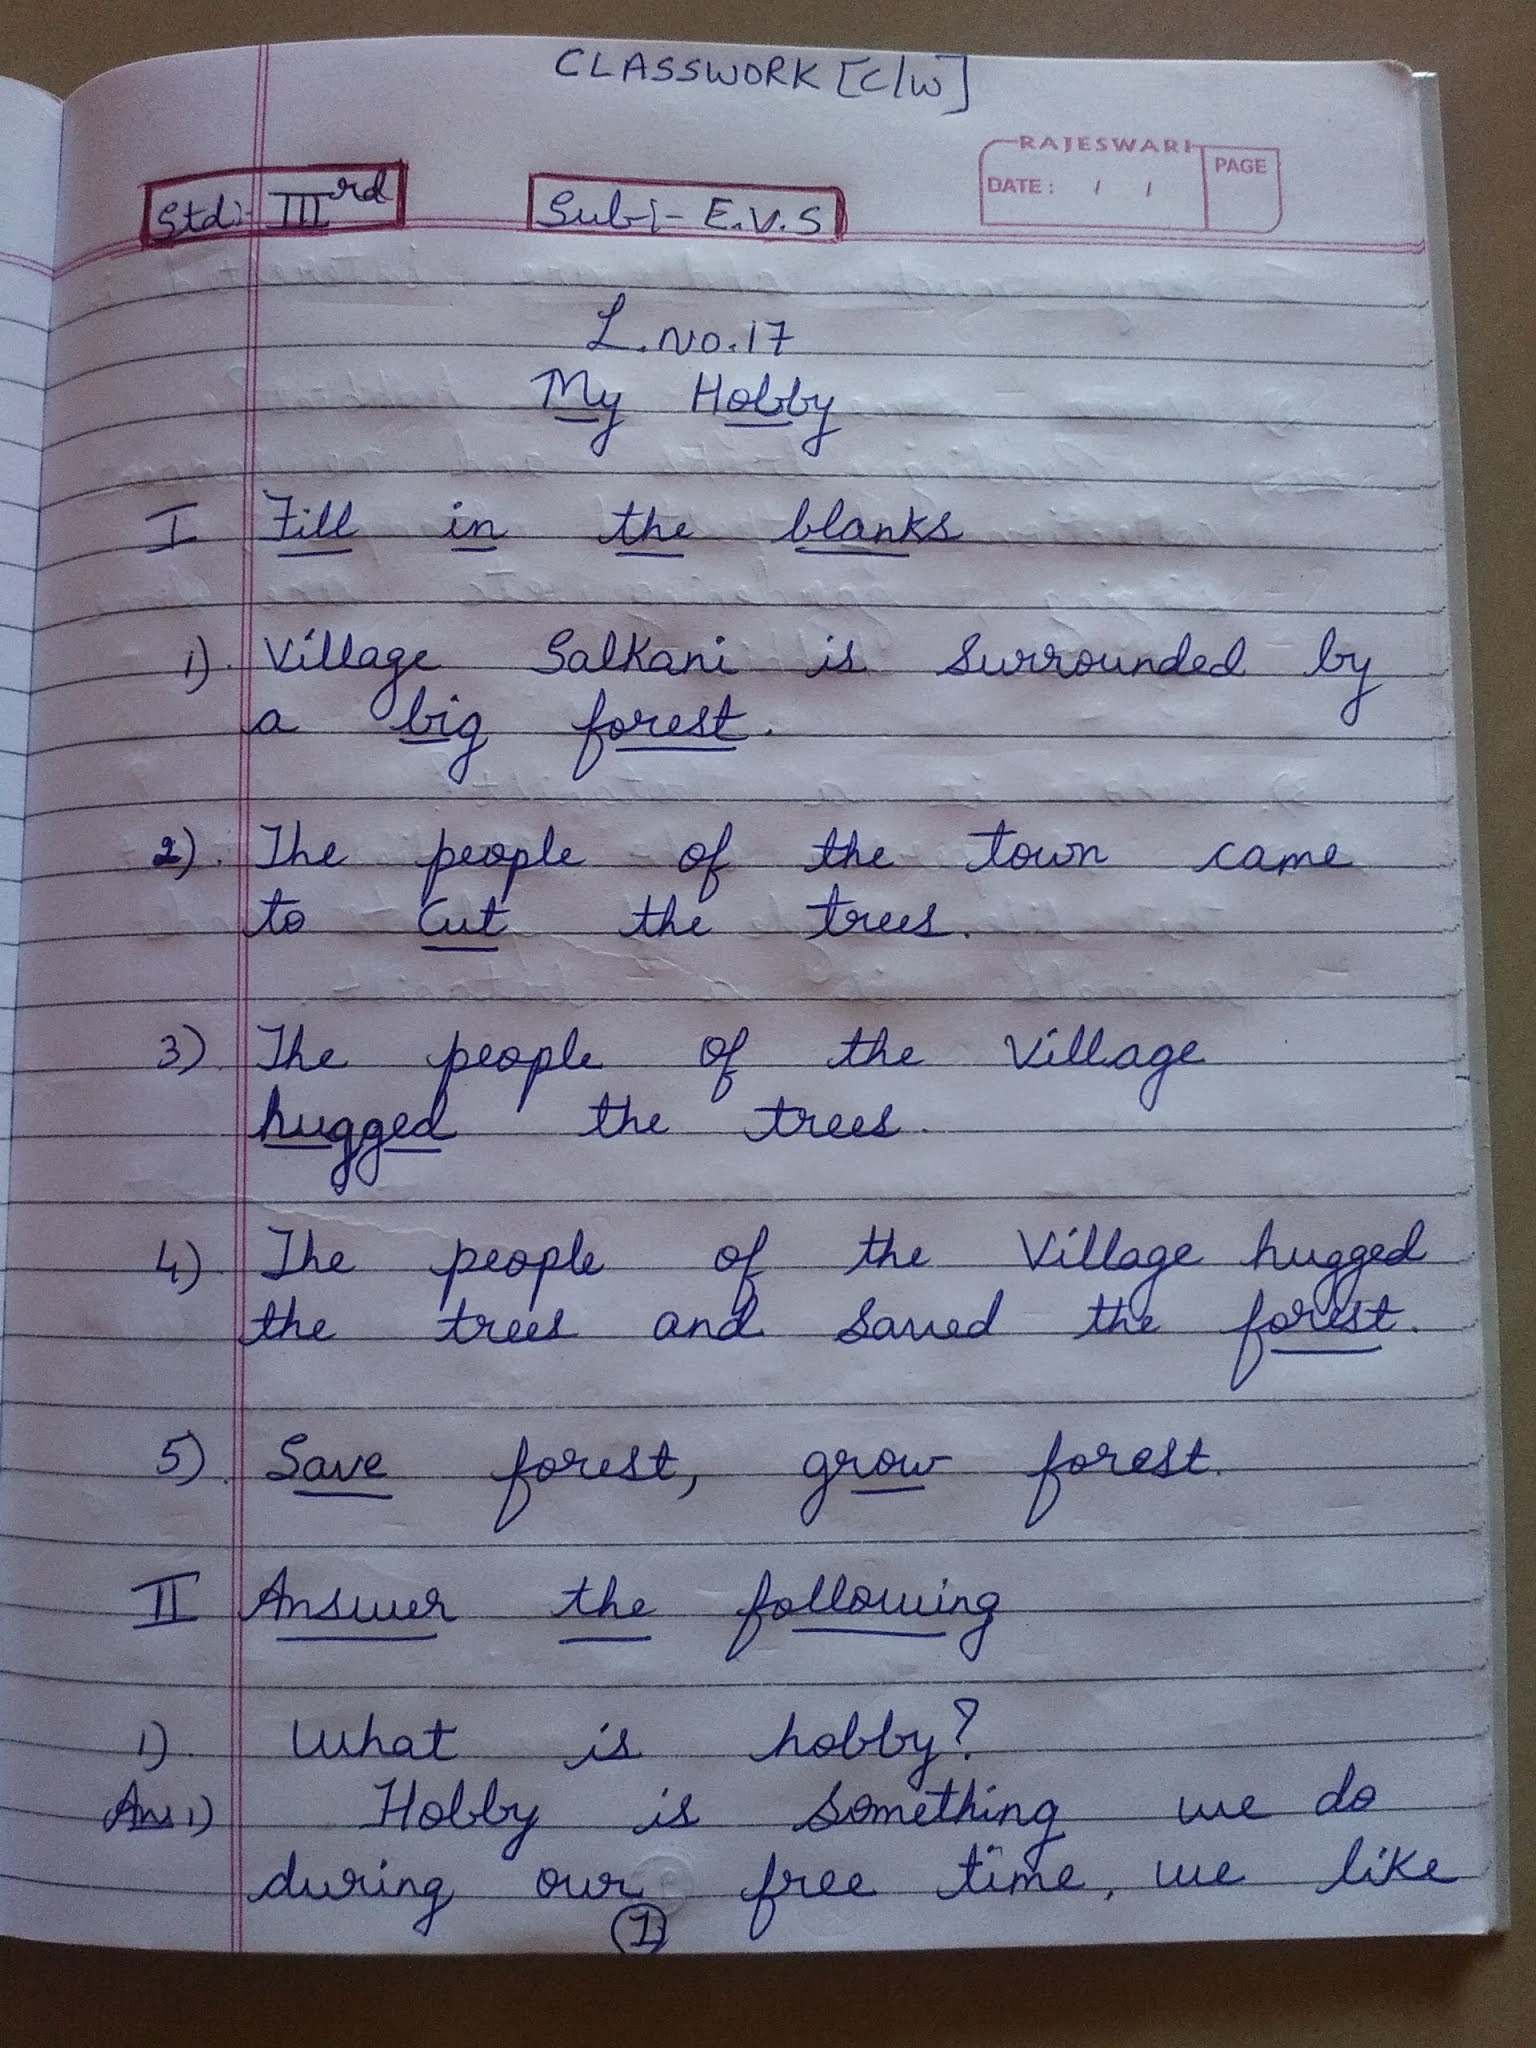 CLASSWORK [C/W]
RAJESWARI
PAGE
DATE: / /
Std:- IIIrd
Sub:- E.V.S
L.No.17
My Hobby
I Fill in the blanks
1). Village Salkani is surrounded by
a big forest.
2). The people of the town came
to cut the trees.
3) The people of the village
hugged the trees.
4) The people of the village hugged
the trees and saved the forest.
5). Save forest, grow forest.
II Answer the following
1). What is hobby?
Ans 1) Hobby is something we do
during our free time, we like
1